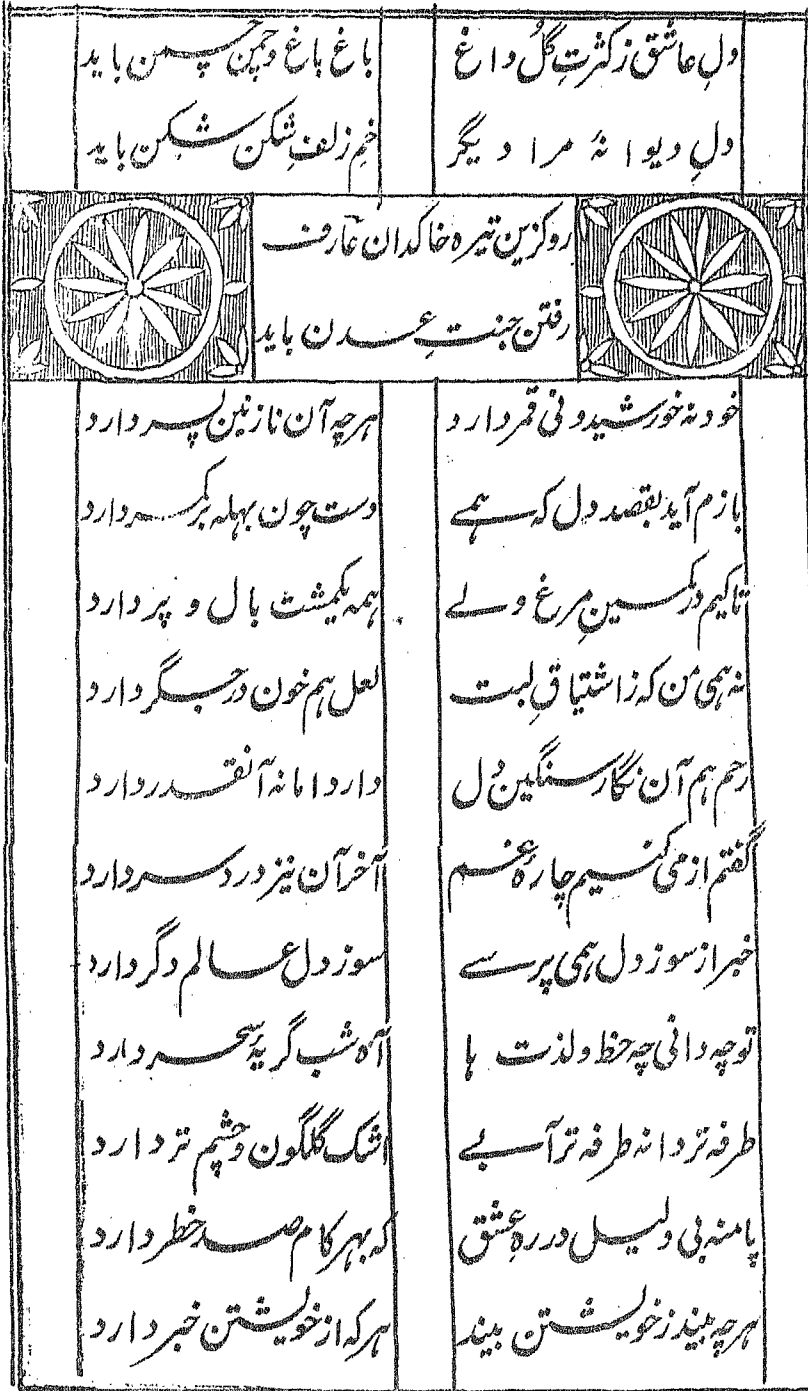 دلِ عاشق ز کثرتِ گلُ داغ باغ باغ و چمن چمن باید
دلِ دیوانۀ مرا دیگر خمِ زلفِ شکن شکن باید
روکزین تیره خاکدان عارف
رفتن جنتِ عدن باید
خود نه خورشید و نی قمر دارد هرچه آن نازنین پسر دارد
بازم آید بقصد دل که همے دست چون بهله بر کمر دارد
تاکیم در کمین مرغ ولے همه یکمشت بال و پر دارد
نه همی من که ز اشتیاقِ لبت لعل هم خون در جگر دارد
رحم هم آن نگار سنگین دل دارد اما نه آنقدر دارد
گفتم از می کنیم چارۀ غم آخر آن نیز درد سر دارد
خبر از سوز دل همی پرسے سوز دل عالم دگر دارد
تو چه دانی چه حظ و لذت ها آه شب گریۀ سحر دارد
طرفه تر دانه طرفه تر آبے اشک گلگون و چشم تر دارد
پا منه بی دلیل در رهِ عشق که بهر کام صد خطر دارد
هرچه بیند ز خویشتن بیند هرکه از خویشتن خبر دارد